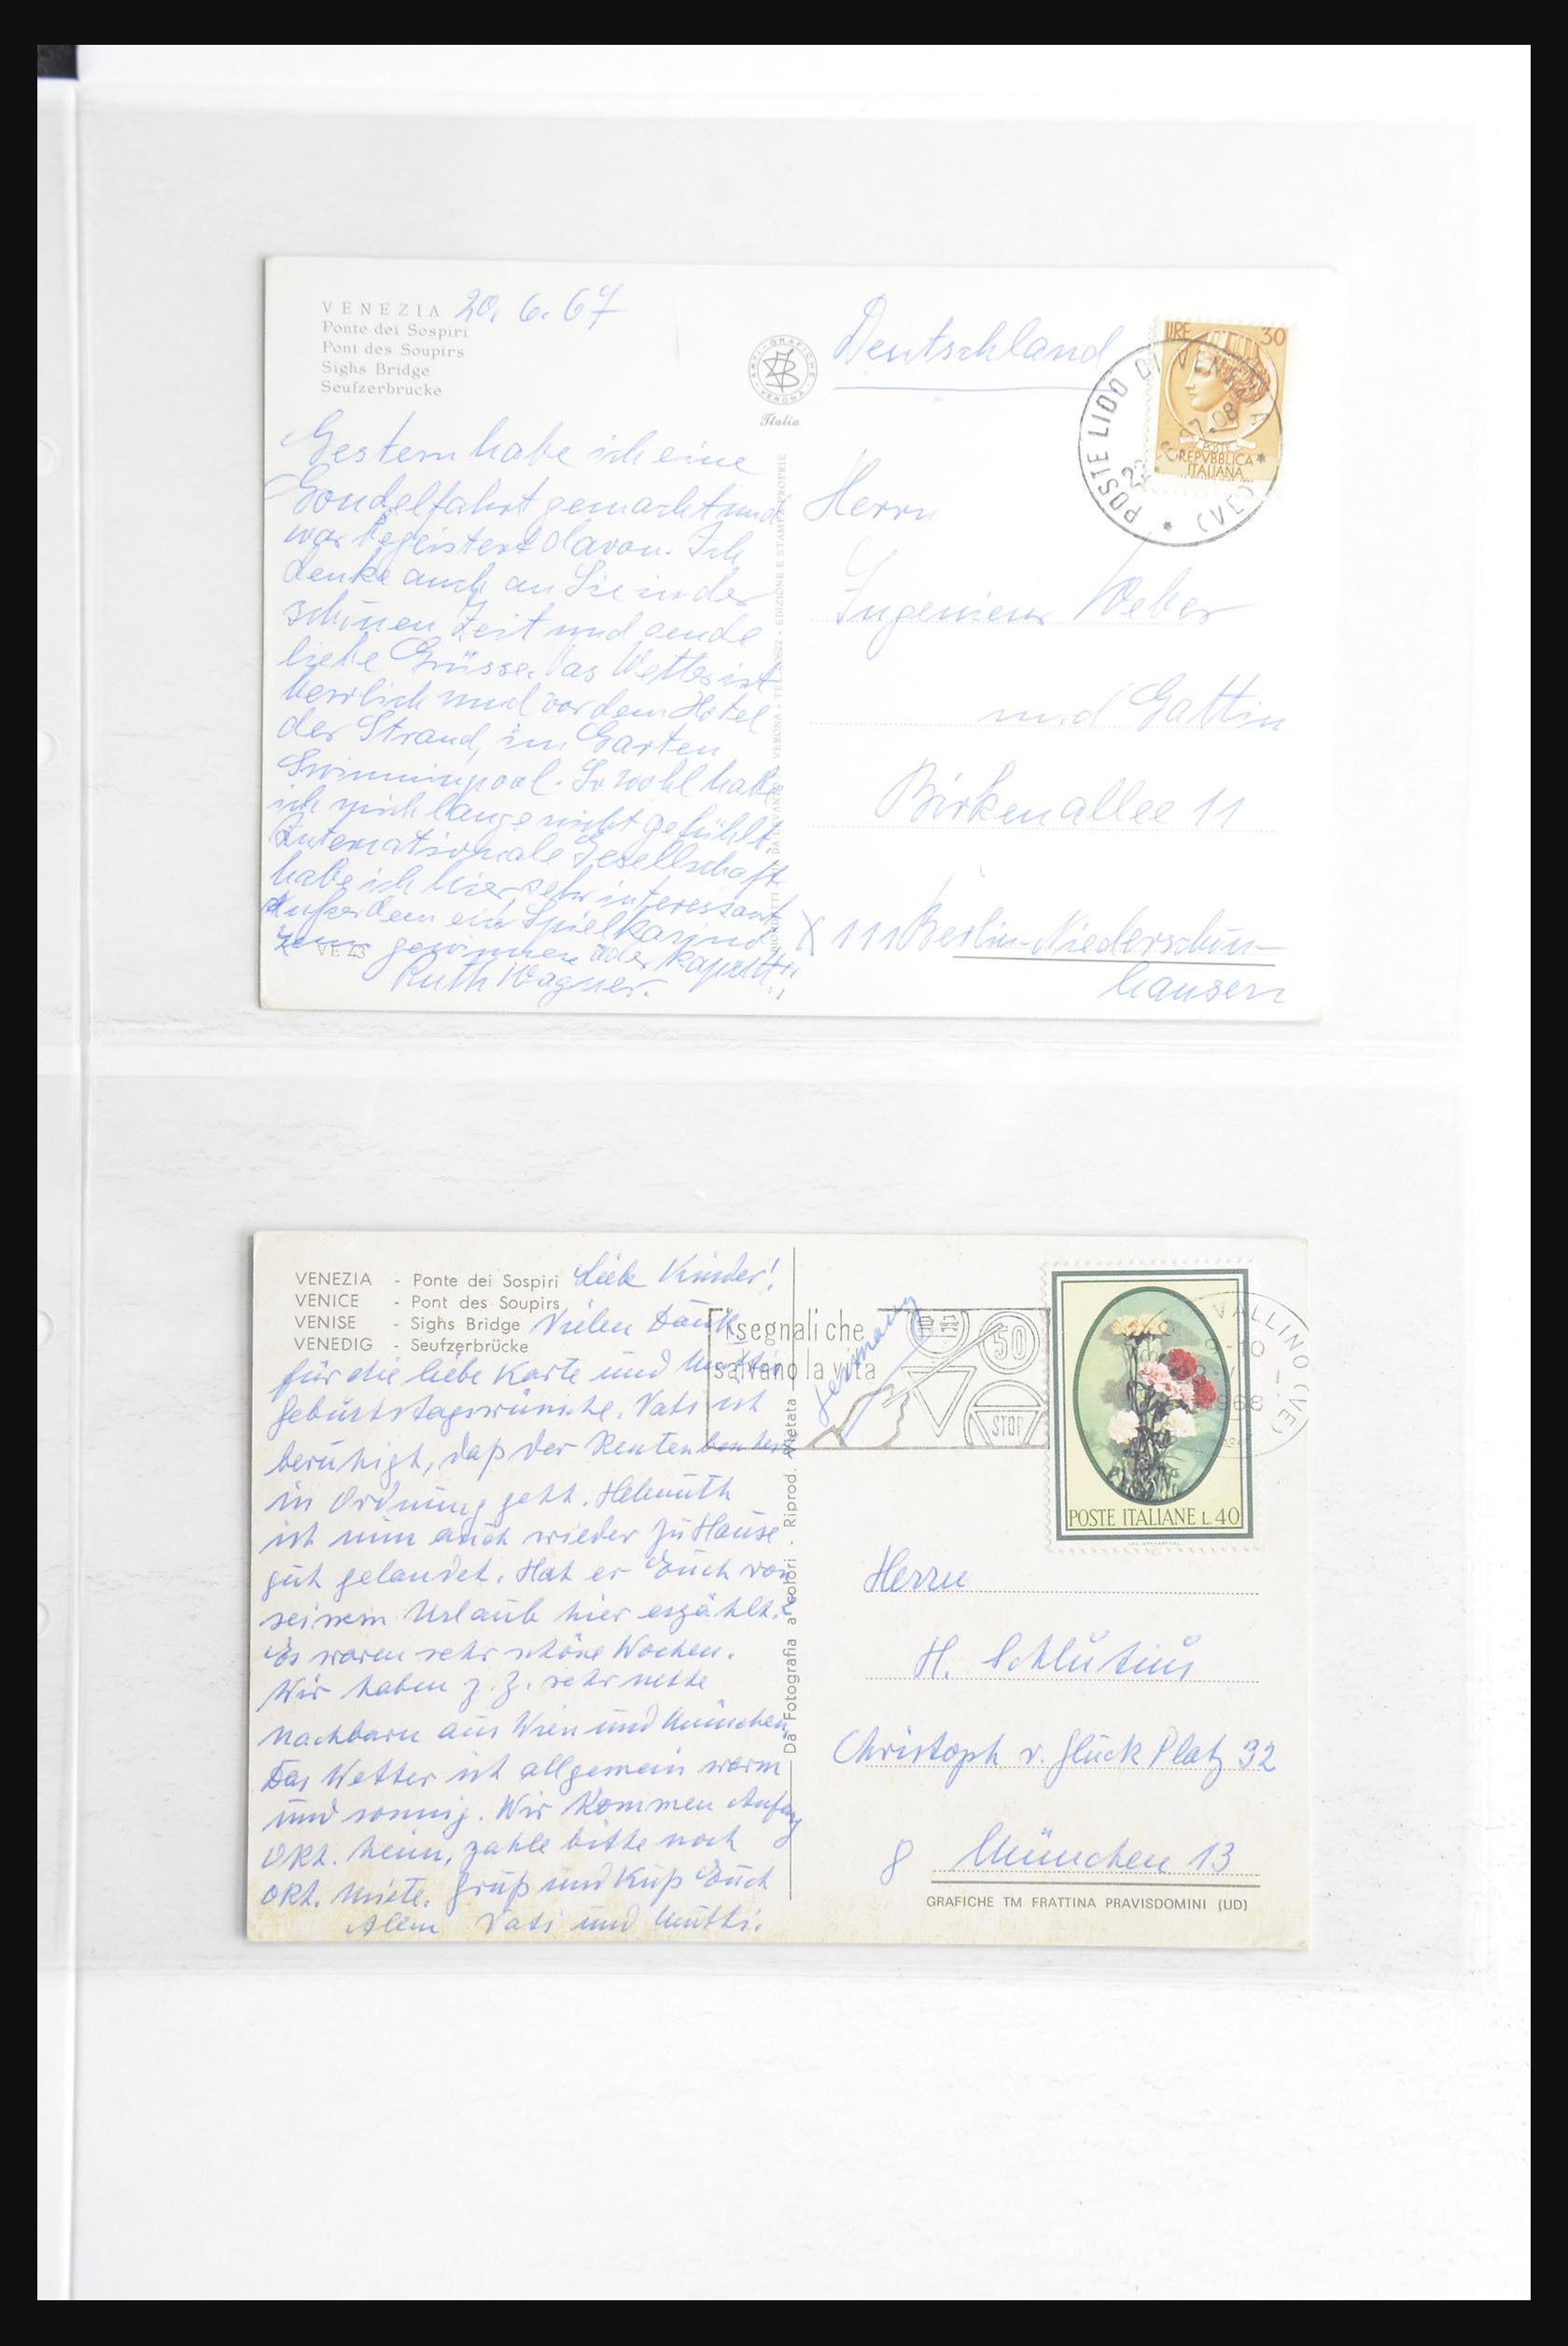 VENEZIA 20. 6. 67
Ponte dei Sospiri
Pont des Soupirs
Sighs Bridge
Seufzerbrucke
Gestern habe ich eine
Gondelfahrt gemacht und
war begeistert davon. Ich
denke auch an Sie in der
schönen Zeit und sende
liebe Grüsse. Das Wetter ist
herrlich und vor dem Hotel
der Strand, im Garten
Swimmingpool. So wohl habe
ich mich lange nicht gefühlt.
Internationale Gesellschaft
habe ich hier sehr interessant
Außerdem ein Spielkasino
zum gewinnen oder kaputt!!
VE 43
Ruth Wagner.
ARTI GRAFICHE
VERONA
Italia
VERONA - EDIZIONE E STAMPA PROPRIE
Deutschland
LIRE 30
POSTE
REPVBBLICA
ITALIANA
POSTE LIDO DI VENEZIA
(VE)
Herrn
Ingenieur Weber
und Gattin
Birkenallee 11
X 111 Berlin-Niederschön-
hausen
VENEZIA - Ponte dei Sospiri
VENICE - Pont des Soupirs
VENISE - Sighs Bridge
VENEDIG - Seufzerbrücke
Liebe Kinder!
Vielen Dank
für die liebe Karte und Muttis
Geburtstagswünsche. Vati ist
beruhigt, daß der Renten
in Ordnung geht. Helmuth
ist nun auch wieder zu Hause
gut gelandet. Hat er Euch von
seinem Urlaub hier erzählt?
Es waren sehr schöne Wochen.
Wir haben z. Z. sehr nette
Nachbarn aus Wien und München
Das Wetter ist allgemein warm
und sonnig. Wir kommen Anfang
Okt. heim, zahle bitte noch
Okt. Miete. Gruß und Kuß Euch
Allen Vati und Mutti.
Da Fotografia a colori . Riprod. Vietata
I segnali che
salvano la vita
50
STOP
Germany
POSTE ITALIANE L. 40
VALLINO (VE)
1968
Herrn
H. Schlutius
Christoph v. Gluck Platz 32
8 München 13
GRAFICHE TM FRATTINA PRAVISDOMINI (UD)